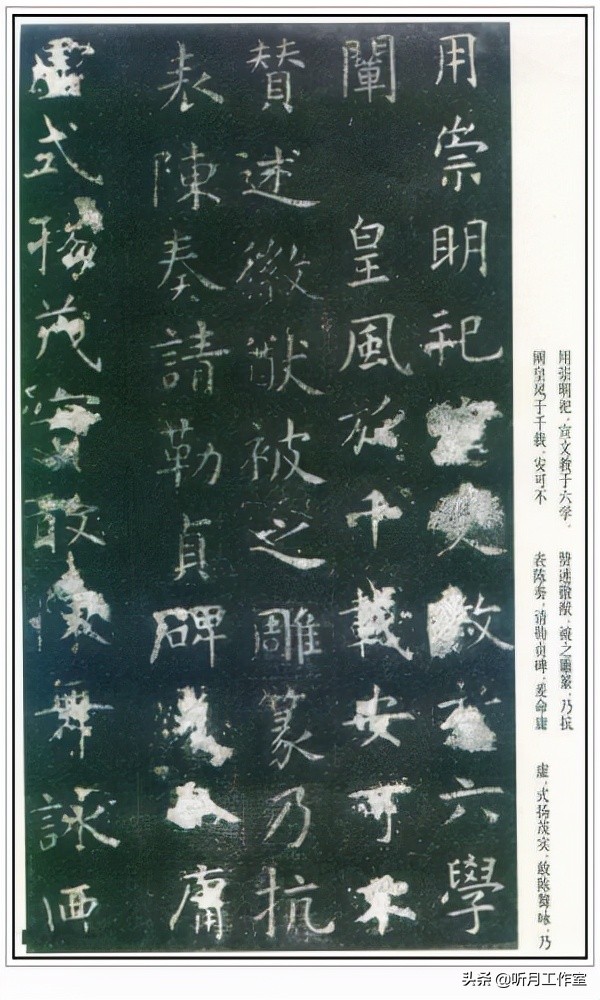 用崇明祀宣文教於六學
闡 皇風於千載安可不
贊述徽猷被之雕篆乃抗
表陳奏請勒貞碑爰命庸
虛式揚茂實敢陳舞詠迺
用崇明祀，宣文教于六学，
阐皇风于千载，安可不
赞述徽猷，被之雕篆，乃抗
表陈奏，请勒贞碑，爰命庸
虚，式扬茂实，敢陈舞咏，乃
头条 @听月工作室